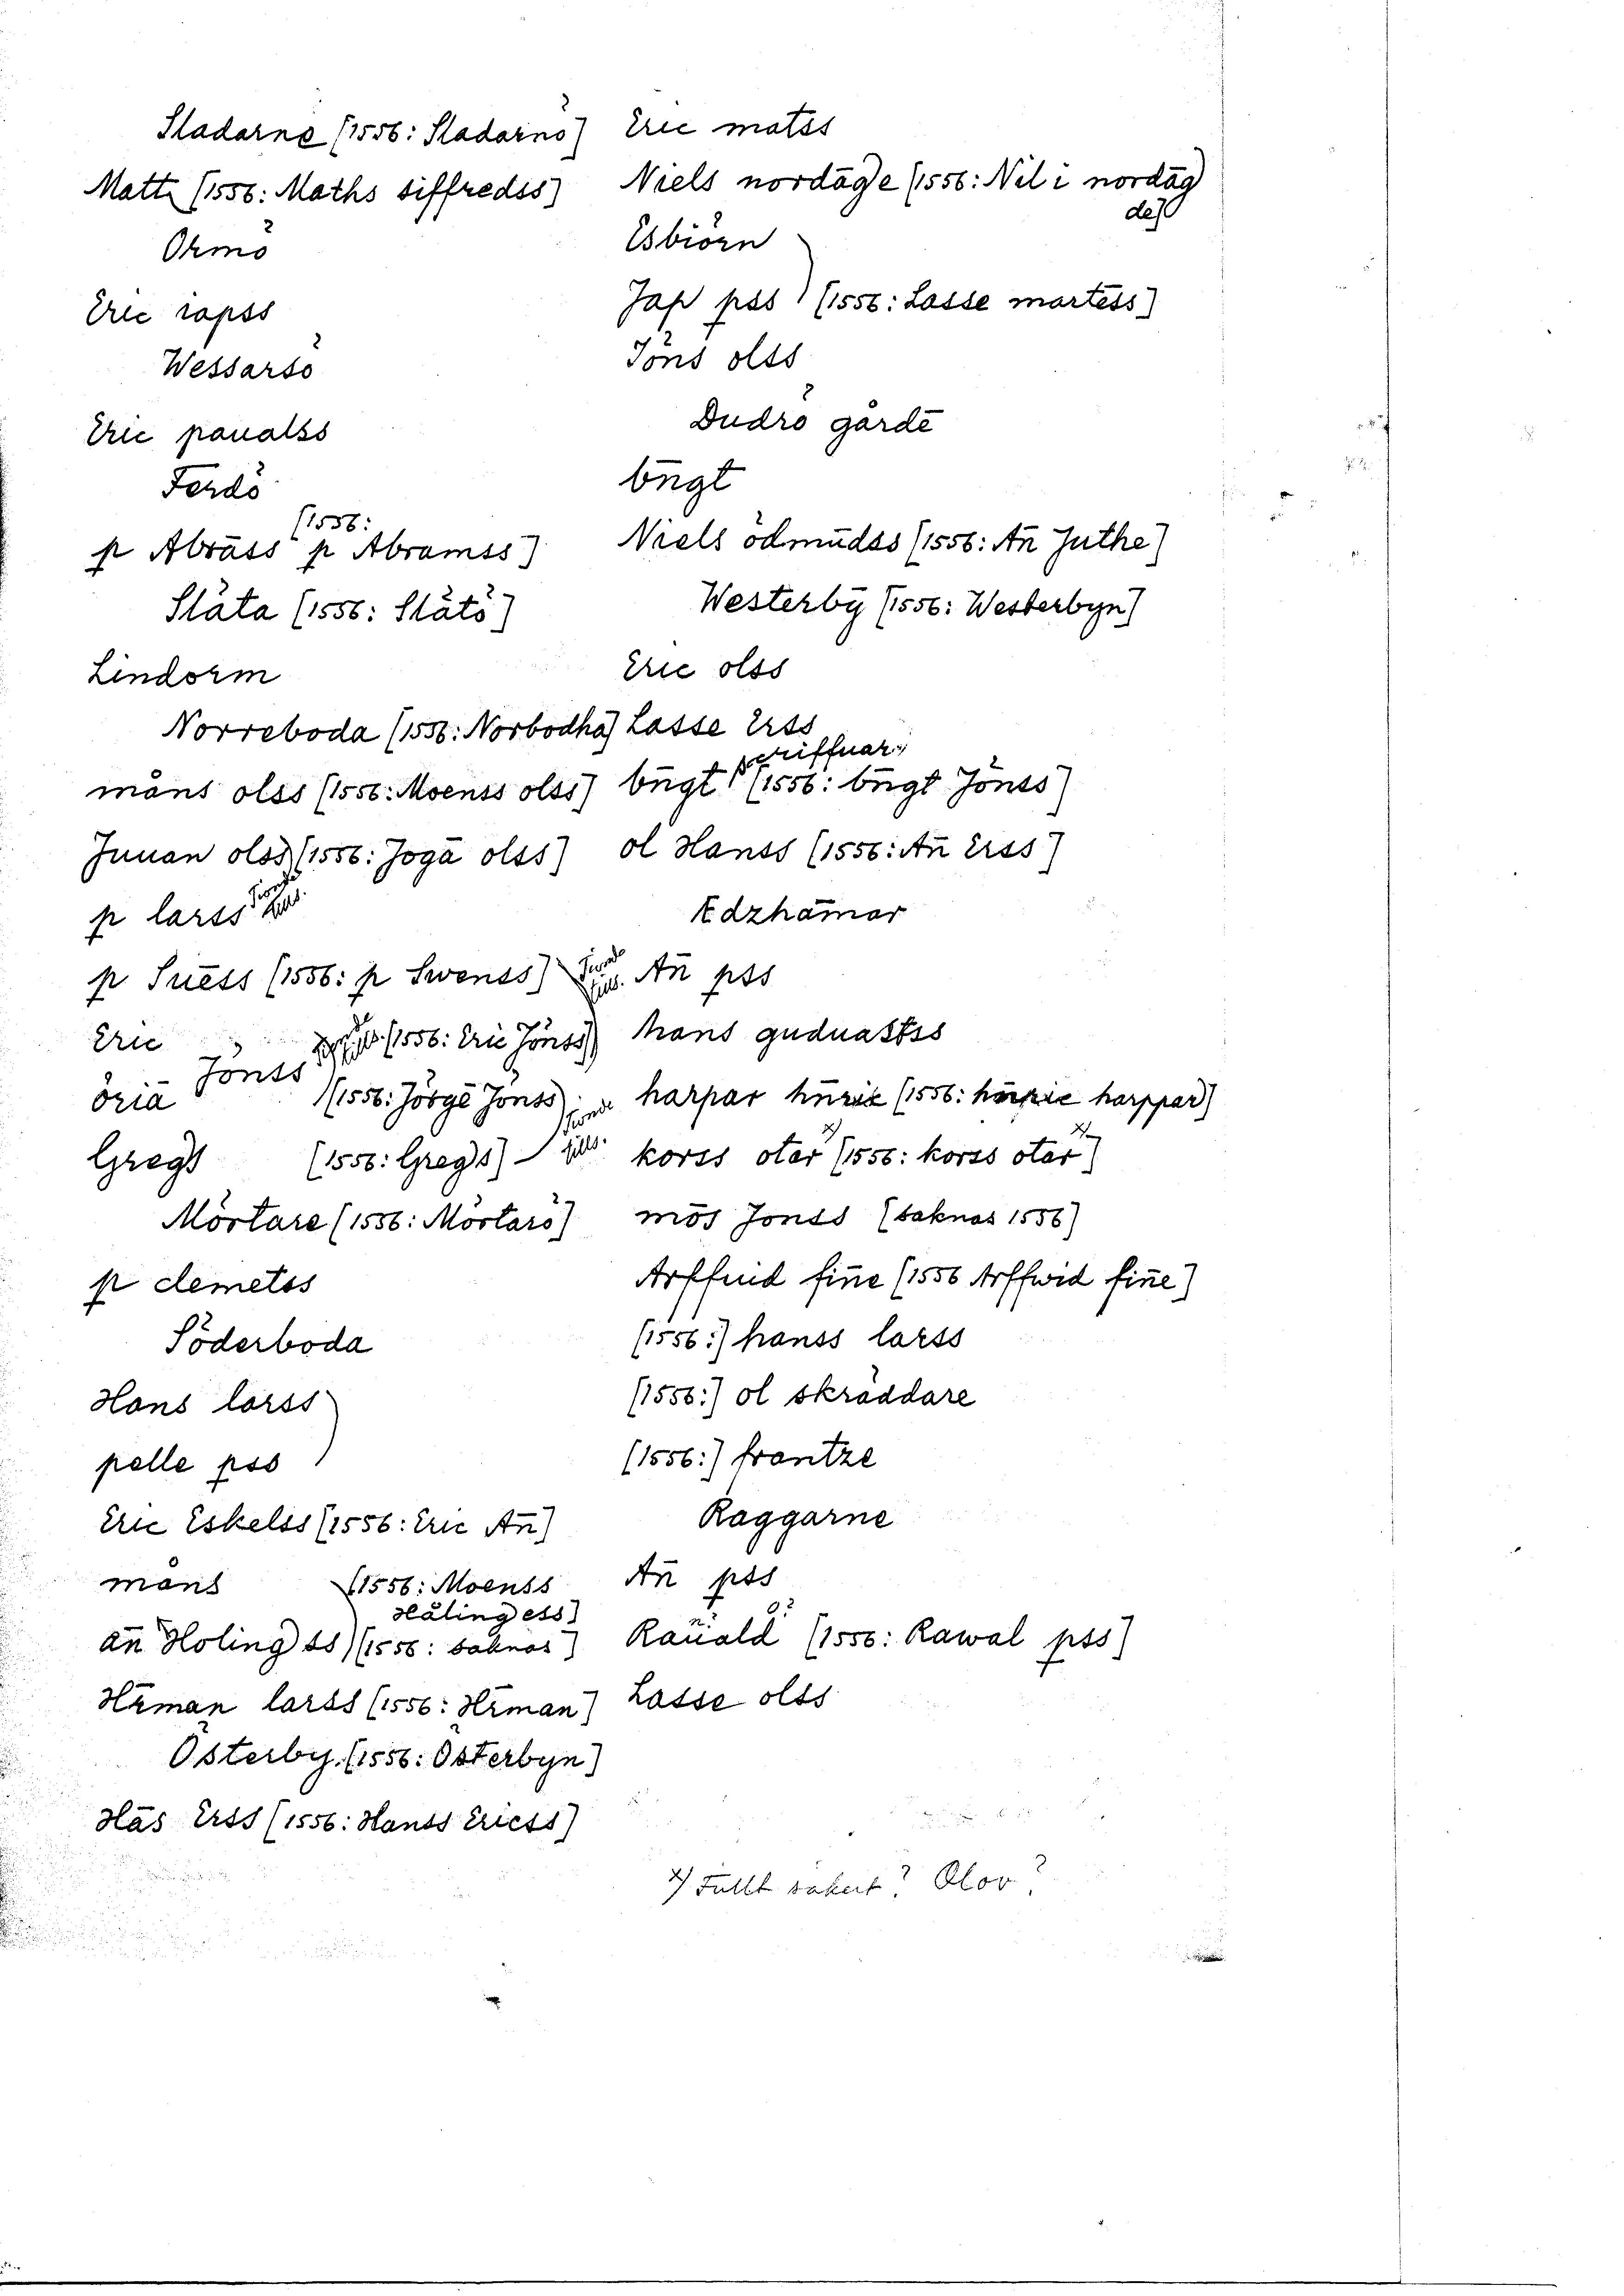 Sladarne [1556: Sladarnö]
Matt [1556: Maths siffredss]
Ormö
Eric iapss
Wessarsö
Eric paualss
Ferdö
[1556:
p Abrāss p Abramss]
Slāta [1556: Slātö]
Lindorm
Norreboda [1556: Norbodha]
måns olss [1556: Moenss olss]
Juuan olss [1556: Jogā olss]
p larss
p Suēss [1556: p Swenss]
Eric [1556: Eric Jönss]
Jönss
öriā [1556: Jörgē Jönss]
Gregs [1556: Gregs] tills.
Mörtare [1556: Mörtarö]
p clemetss
Söderboda
Hans larss
pelle pss
Eric Eskelss [1556: Eric An̄]
måns [1556: Moenss
Hålingess]
an̄ Holingss [1556: saknas]
Hīman larss [1556: Hīman]
Österby [1556: Österbyn]
Hās Erss [1556: Hanss Ericss]
Eric matss
Niels nordāge [1556: Nil i nordāg
de]
Esbiörn
Jap pss [1556: Lasse martēss]
Jöns olss
Dudrö gårdē
bn̄gt
Niels ödmūdss [1556: An̄ Juthe]
Westerby [1556: Westerbyn]
Eric olss
Lasse Erss
scriffuar
bn̄gt [1556: bn̄gt Jönss]
ol Hanss [1556: An̄ Erss]
Edzhāmar
An̄ pss
hans guduastss
harpar hn̄ric [1556: hn̄ric harppar]
korss otar x) [1556: korss otar x)]
mös Jonss [saknas 1556]
Arffuid fin̄e [1556 Arffwid fin̄e]
[1556:] hanss larss
[1556:] ol skräddare
[1556:] frantze
Raggarne
An̄ pss
Rauald [1556: Rawal pss]
Lasse olss
x) Fullt säkert? Olov?